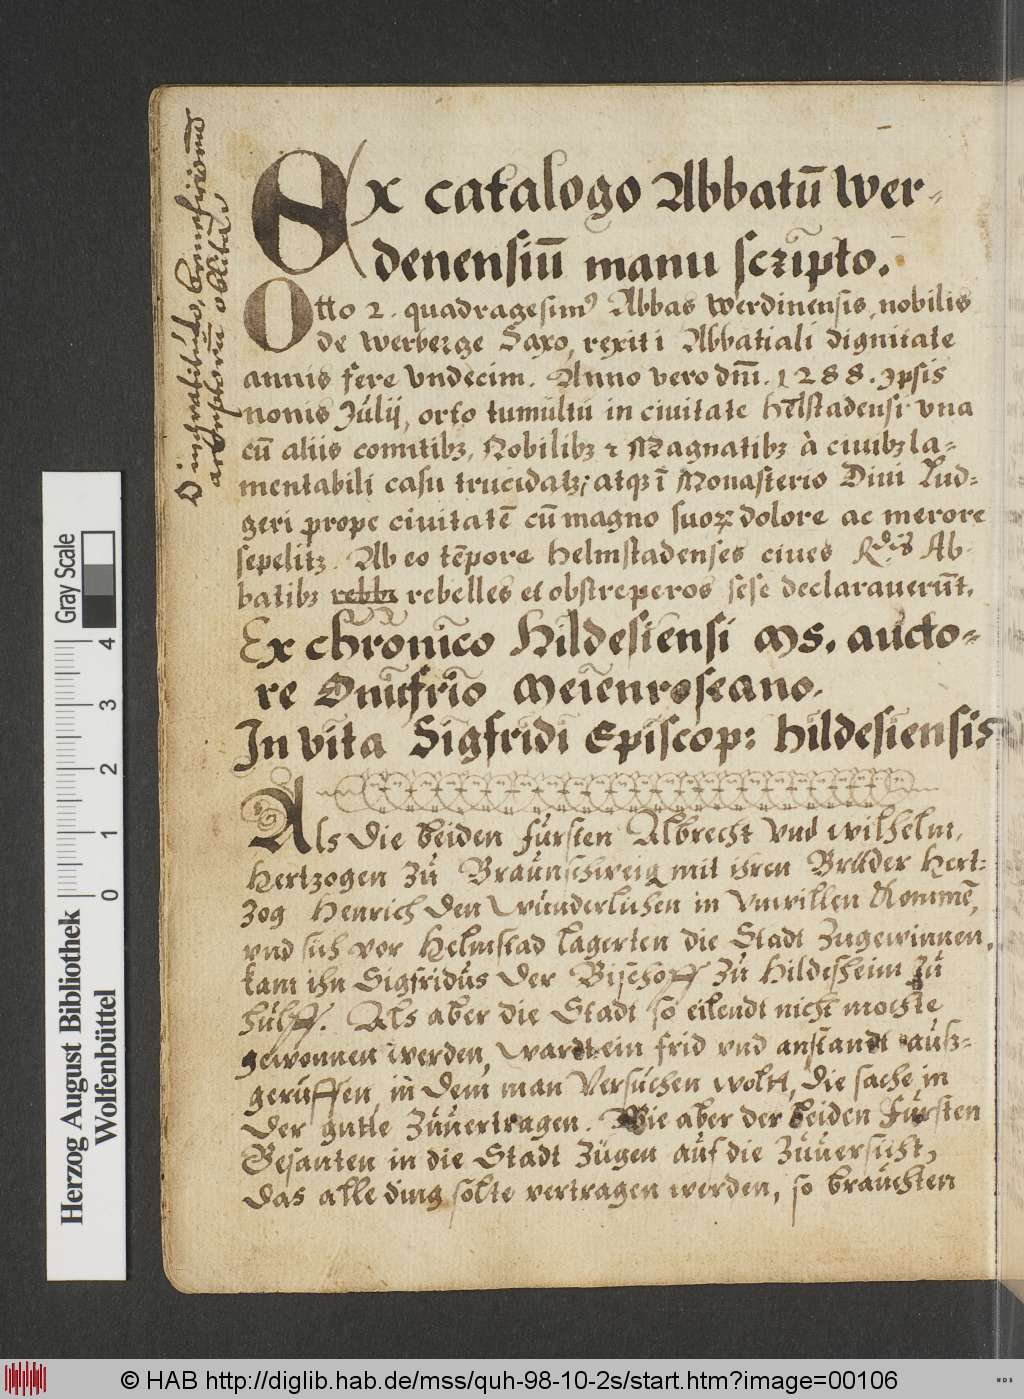 O ingratitudo, beneficiorum
acceptorū oblita.
Ex catalogo Abbatū Wer-
denensiū manu scripto.
Otto 2. quadragesimꝰ Abbas Werdinensis, nobilis
de Werberge Saxo, rexit i Abbatiali dignitate
annis fere vndecim. Anno vero dn̄i. 1288. Ipsis
nonis Julij, orto tumultu in ciuitate Helstadensi vna
cū aliis comitibꝫ, Nobilibꝫ ⁊ Magnatibꝫ à ciuibꝫ la=
mentabili casu trucidatꝫ, atqꝫ ī Monasterio Diui Lud=
geri prope ciuitatē cū magno suoꝝ dolore ac merore
sepelitꝫ. Ab eo tēpore Helmstadenses ciues Rdis Ab-
batibꝫ rebbe rebelles et obstreperos sese declarauerūt.
Ex chronico Hildesiensi Ms. aucto=
re Onufrio Meienroseano.
In vita Sigfridi Episcop: Hildesiensis
Als die beiden fürsten Albrecht vnd wilhelm,
Hertzogen zu Braunschweig mit ihren Brüder Hert=
zog Henrich den Wunderlichen in Vnwillen Kommē,
vnd sich vor Helmstad lagerten die Stadt zugewinnen,
kam ihn Sigfridus der Bischoff zu Hildesheim zu
hülff. Als aber die Stadt so eilendt nicht mochte
gewonnen werden, wardt ein frid vnd anstandt auß=
geruffen, in dem man Versuchen wolt, die sache in
der gutte zuuertragen. Wie aber der beiden Fürsten
Gesanten in die Stadt zugen auf die zuuersicht,
das alle ding solte vertragen werden, so brauchten
Herzog August Bibliothek
Wolfenbüttel
Gray Scale
0 1 2 3 4
© HAB http://diglib.hab.de/mss/quh-98-10-2s/start.htm?image=00106